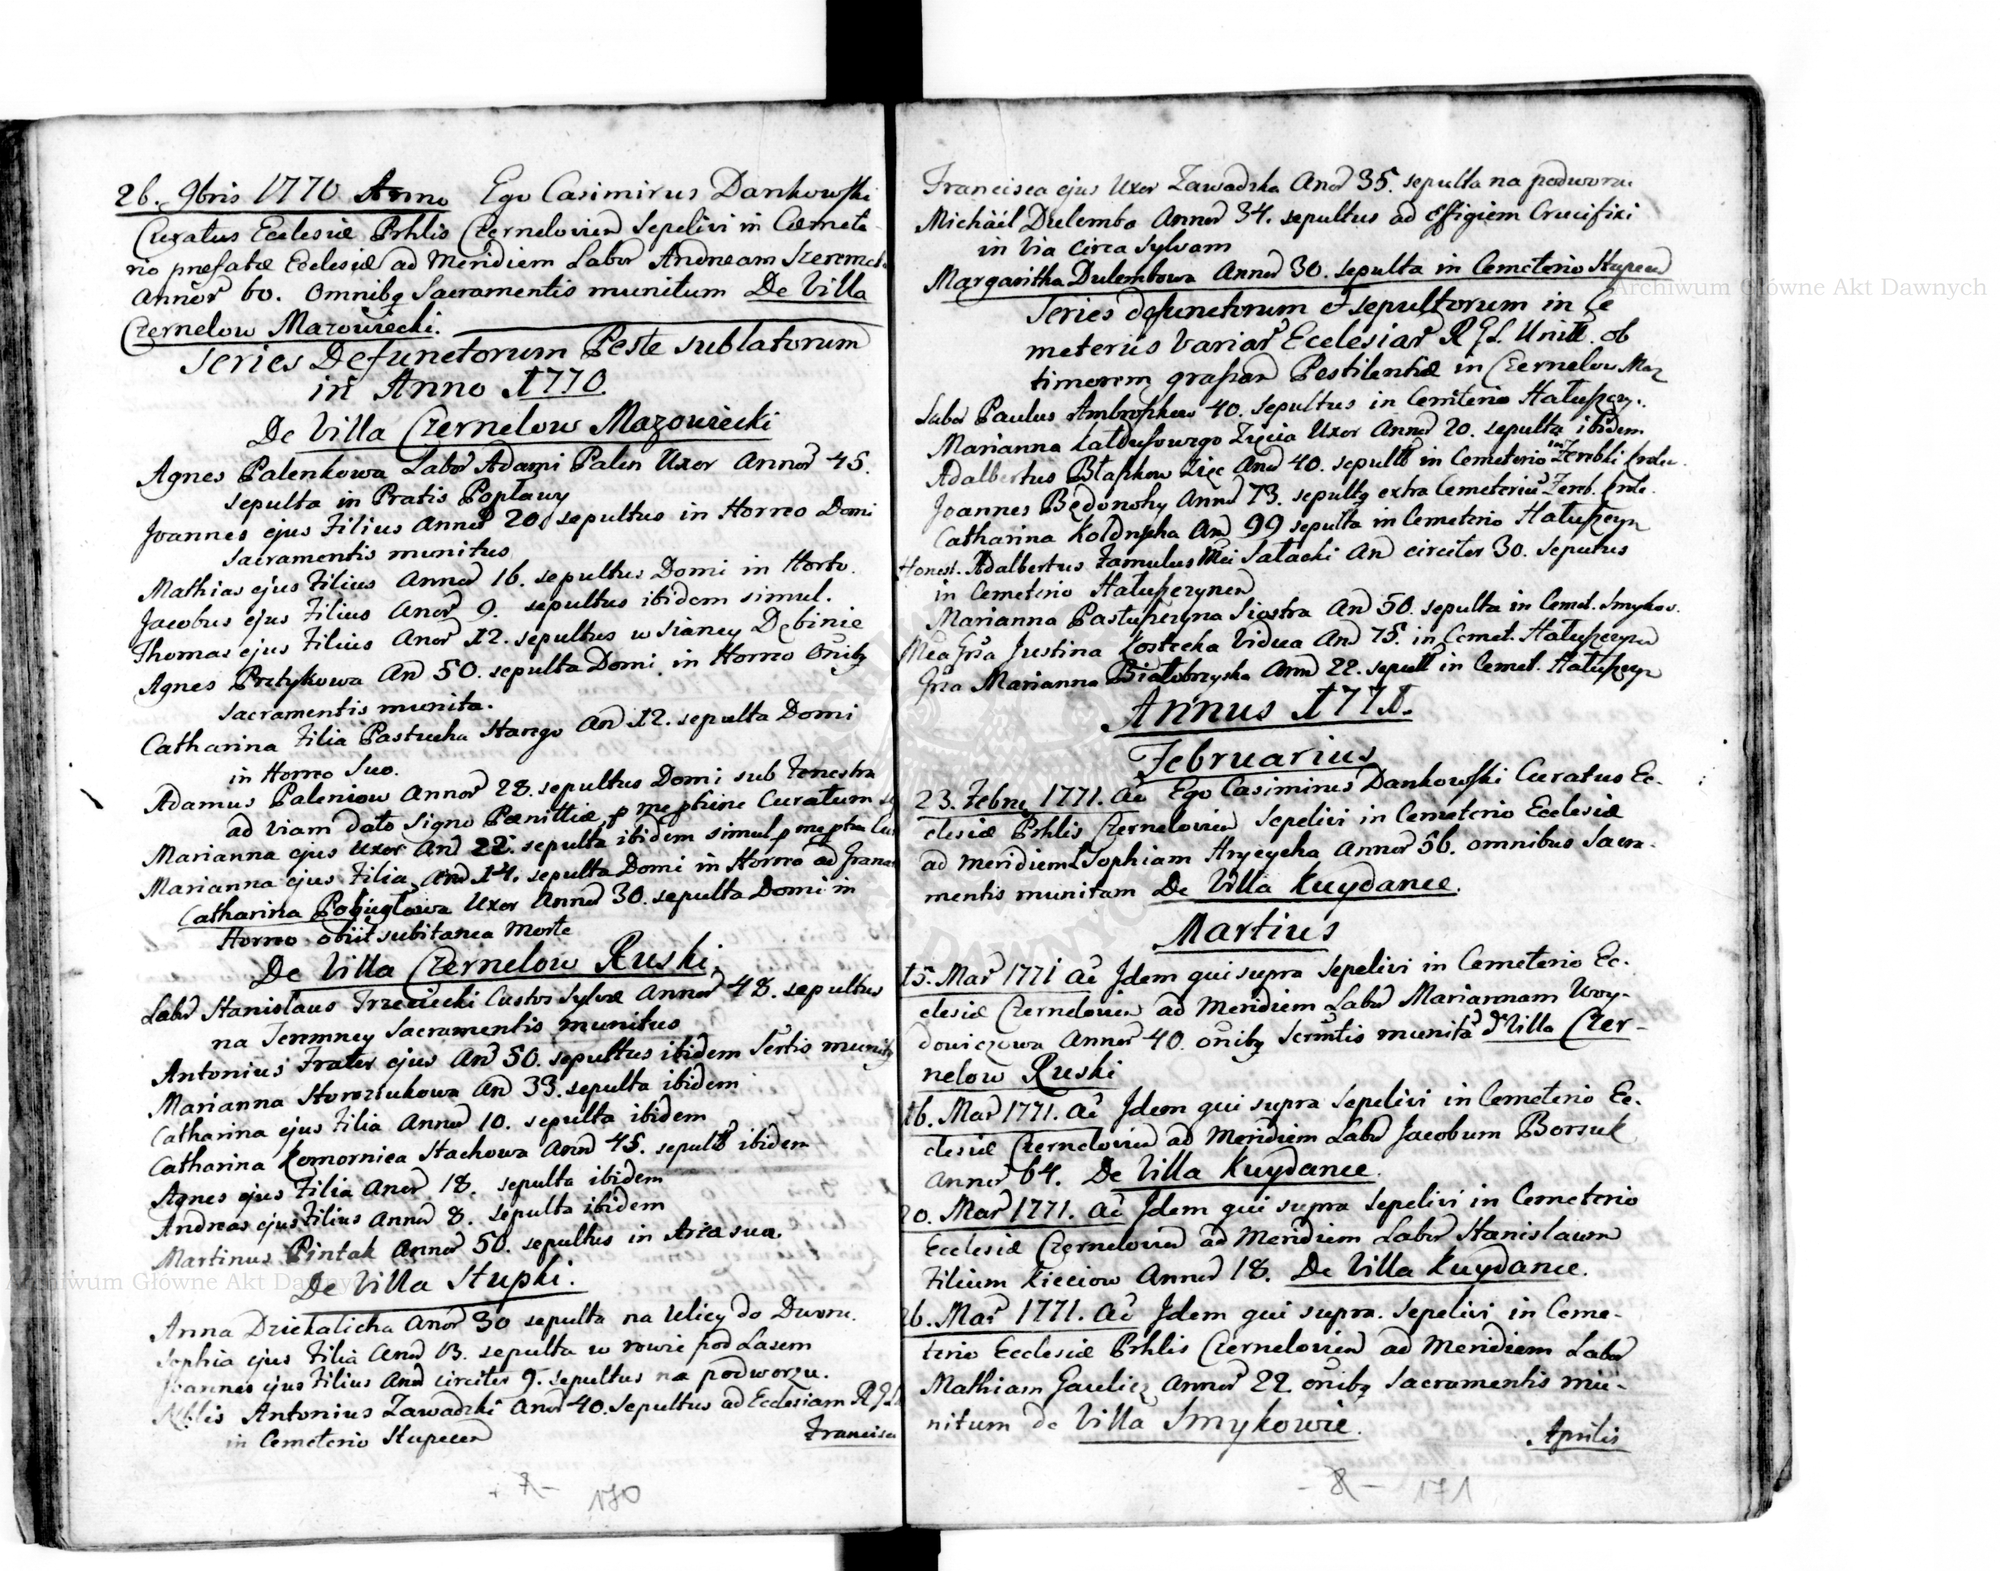 26. 9bris 1770 Anno Ego Casimirus Dankowski
Curatus Ecclesiæ Prhlis Czernelovien Sepelivi in Cæmete-
rio prefatæ Ecclesiæ ad Meridiem Labor Andream
Annor 60. Omnibg Sacramentis munitum De Villa
Czernelow Mazowiecki.
Series Defunctorum Peste sublatorum
in Anno 1770
De Villa Czernelow Mazowiecki
Agnes Palenkowa Labor Adami Palen Uxor Annor 45.
sepulta in Pratis Popławy
Joannes ejus Filius Annor 20. sepultus in Horreo Domi
Sacramentis munitus
Mathias ejus Filius Annor 16. sepultus Domi in Horto.
Jacobus ejus Filius Anor 9. sepultus ibidem simul.
Thomas ejus Filius Anor 12. sepultus w Sianey Dębinie
Agnes Prztykowa An 50. sepulta Domi in Horreo Onibg
Sacramentis munita.
Catharina Filia Pastucha Hango An 12. sepulta Domi
in Horreo Suo.
Adamus Paleniow Annor 28. sepultus Domi sub Fenestra
ad viam dato Signo Pœnittiæ p me phine Curatum
Marianna ejus Uxor An 22. sepulta ibidem simul p me
Marianna ejus Filia An 14. sepulta Domi in Horreo ad
Catharina Uxor Annor 30. sepulta Domi in
Horreo obiit subitanea Morte
De Villa Czernelow Ruski.
Labor Stanislaus Trzeciecki Custos Sylvæ Annor 48. sepultus
na Sacramentis munitus
Antonius Frater ejus An 50. sepultus ibidem
Marianna Horoziukowa An 33. sepulta ibidem
Catharina ejus Filia Annor 10. sepulta ibidem
Catharina Komornica Stachowa Ann 45. sepult ibidem
Agnes ejus Filia Anor 18. sepulta ibidem
Andreas ejus Filius Annor 8. sepulta ibidem
Martinus Pintak Annor 50. sepultus in Area sua.
De Villa Stupki.
Anna Dziekalicha Anor 30 sepulta na Ulicy do Dworu.
Sophia ejus Filia Anor 13. sepulta w rowie pod Lasem
Joannes ejus Filius Anor circiter 9. sepultus na podworzu.
Nblis Antonius Zawadzki Anor 40. Sepultus ad Ecclesiam
in Cemeterio Stupecen
Francisca
170
Francisca ejus Uxor Zawadzka Anor 35. sepulta na podworzu
Michaël Dulemba Annor 34. sepultus ad Effigiem Crucifixi
in Via circa Sylvam
Margaritha Dulembowa Annor 30. sepulta in Cemeterio Stupecen
Series defunctorum & sepultorum in Ce
meteriis Variar Ecclesiar R G L Unitt. ob
timorem grassan Pestilentiæ in Czernelow Maz
Labor Paulus 40. sepultus in Cemterio Hałuszczy.
Marianna Kaldusowego Zięcia Uxor Annor 20. sepulta ibidem
Adalbertus Błaszkow Zięc Anor 40. sepult in Cemeterio
Joannes Annor 73. sepultg extra Cemeterium
Catharina An 99 sepulta in Cemeterio Hałuszczyn
Honest. Adalbertus Famulus Mci Sałacki An circiter 30. Seputus
in Cemeterio Hałuszczynen
Marianna Pastuszczyna Siostra An 50. sepulta in Cemet. Smykow.
Justina Kostecka Vidua An 75. in Cemet. Hałuszczyn
Marianna Białobrzyska Ann 22. sepult in Cemet. Hałuszczyn
Annus 1771.
Februarius
23. Febrg 1771. Ao Ego Casimirus Dankowski Curatus Ec-
clesiæ Prhlis Czernelovien Sepelivi in Cemeterio Ecclesiæ
ad Meridiem Sophiam Annor 56. omnibus Sacra-
mentis munitam De Villa Kuydance.
Martius
15. Mar 1771 Ao Idem qui supra Sepelivi in Cemeterio Ec-
clesiæ Czernelovien ad Meridiem Labor Mariannam Woy-
dowiczowa Annor 40. onibg Scrmtis munita d Villa Czer-
nelow Ruski
16. Mar 1771. Ao Idem qui supra Sepelivi in Cemeterio Ec-
clesiæ Czernelovien ad Meridiem Labor Jacobum Borsuk
Annor 64. De Villa Kuydance.
20. Mar 1771. Ao Idem qui supra sepelivi in Cemeterio
Ecclesiæ Czernelovien ad Meridiem Labor Stanislaum
Filium Kicciow Annor 18. De Villa Kuydance.
26. Mar 1771. Ao Idem qui supra. Sepelivi in Ceme-
terio Ecclesiæ Prhlis Czernelovien ad Meridiem Labor
Mathiam Gaulicz Annor 22 onibg Sacramentis mu-
nitum de Villa Smykowie.
Aprilis
- 8 - 171
Archiwum Główne Akt Dawnych
Archiwum Główne Akt Dawnych